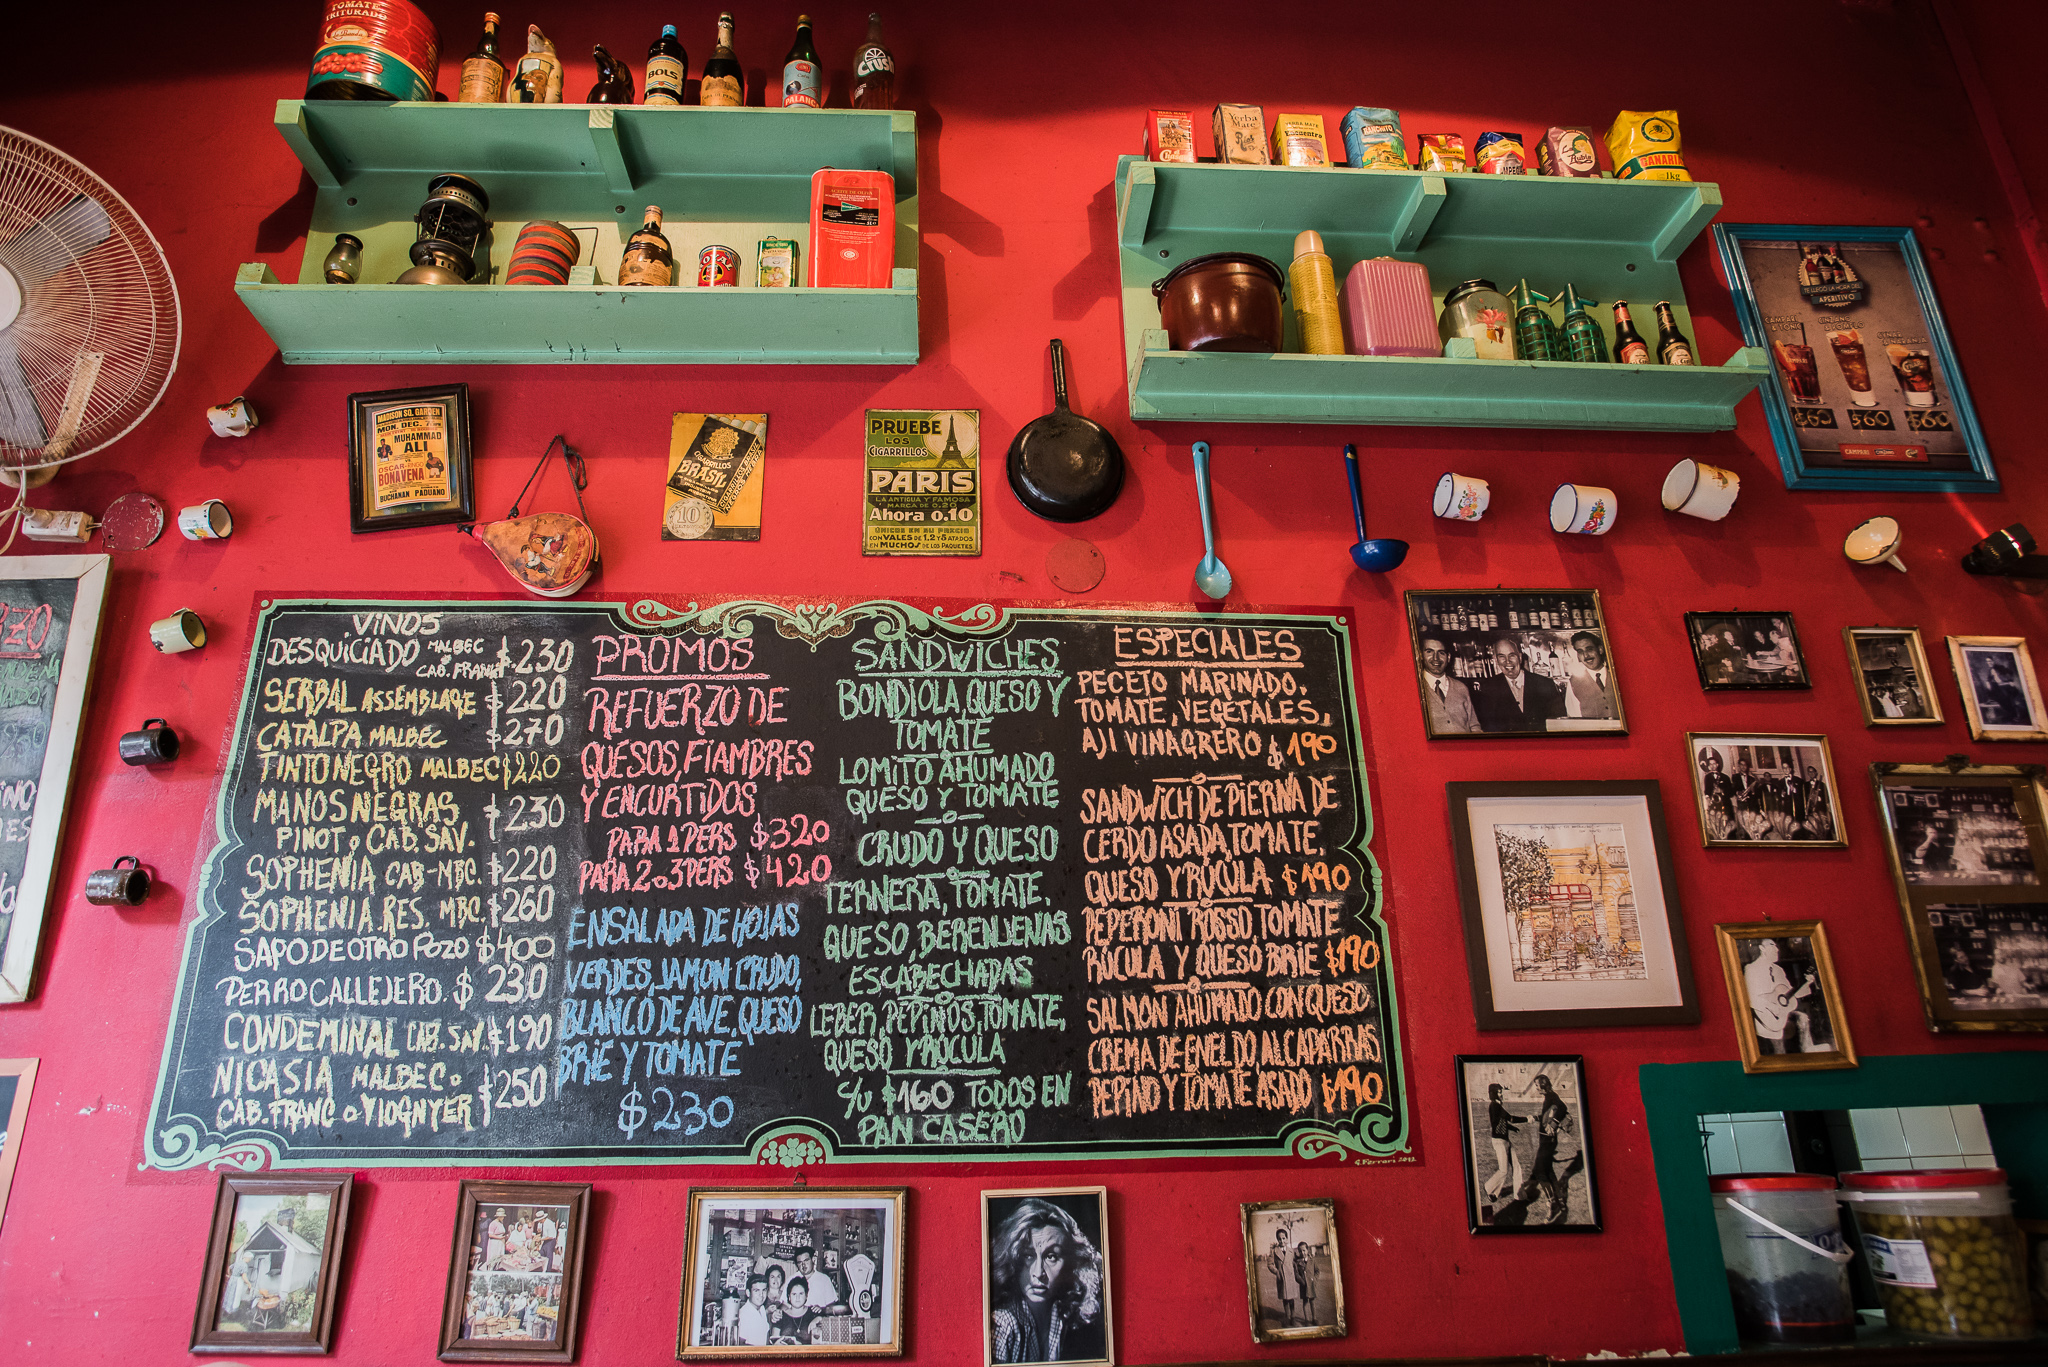 TOMATE
TRITURADO
BOLS
PALANCA
Crush
ACEITE DE OLIVA
YERBA MATE
Yerba
Mate
YERBA MATE
Encuentra
RANCHITO
Rubia
CANARIAS
1kg
TE LLEGÓ LA HORA DEL
APERITIVO
CAMPARI
& TONIC
$60
$60
$60
CAMPARI
MADISON SQ. GARDEN
MON. DEC. 7
MUHAMMAD
ALI
OSCAR
BONAVENA
BUCHANAN PADUANO
CIGARRILLOS
BRASIL
10
PRUEBE
LOS
CIGARRILLOS
PARIS
LA ANTIGUA Y FAMOSA
MARCA DE 0.20
Ahora 0.10
ÚNICOS EN SU PRECIO
CON VALES DE 1,2 Y 5 ATADOS
EN MUCHOS DE LOS PAQUETES
VINOS
DESQUICIADO MALBEC
CAB. FRANC $230
SERBAL ASSEMBLAGE $220
CATALPA MALBEC $270
TINTO NEGRO MALBEC $220
MANOS NEGRAS $230
PINOT o CAB. SAV.
SOPHENIA CAB-MBC. $220
SOPHENIA.RES. MBC. $260
SAPO DE OTRO POZO $400
PERRO CALLEJERO. $230
CONDEMINAL CAB. SAV. $190
NICASIA MALBEC o $250
CAB. FRANC o VIOGNYER
PROMOS
REFUERZO DE
QUESOS, FIAMBRES
Y ENCURTIDOS
PARA 1 PERS $320
PARA 2 o 3 PERS $420
ENSALADA DE HOJAS
VERDES, JAMON CRUDO,
BLANCO DE AVE, QUESO
BRIE Y TOMATE
$230
SANDWICHES
BONDIOLA, QUESO Y
TOMATE
LOMITO AHUMADO
QUESO Y TOMATE
CRUDO Y QUESO
TERNERA, TOMATE.
QUESO, BERENJENAS
ESCABECHADAS
LEBER, PEPINOS, TOMATE,
QUESO Y RÚCULA
c/u $160 TODOS EN
PAN CASERO
ESPECIALES
PECETO MARINADO.
TOMATE, VEGETALES,
AJI VINAGRERO $190
SANDWICH DE PIERNA DE
CERDO ASADA, TOMATE,
QUESO Y RÚCULA $190
PEPERONI ROSSO, TOMATE
RÚCULA Y QUESO BRIE $190
SALMON AHUMADO CON QUESO
CREMA DE ENELDO, ALCAPARRAS
PEPINO Y TOMATE ASADO $190
G. Ferrari 2012